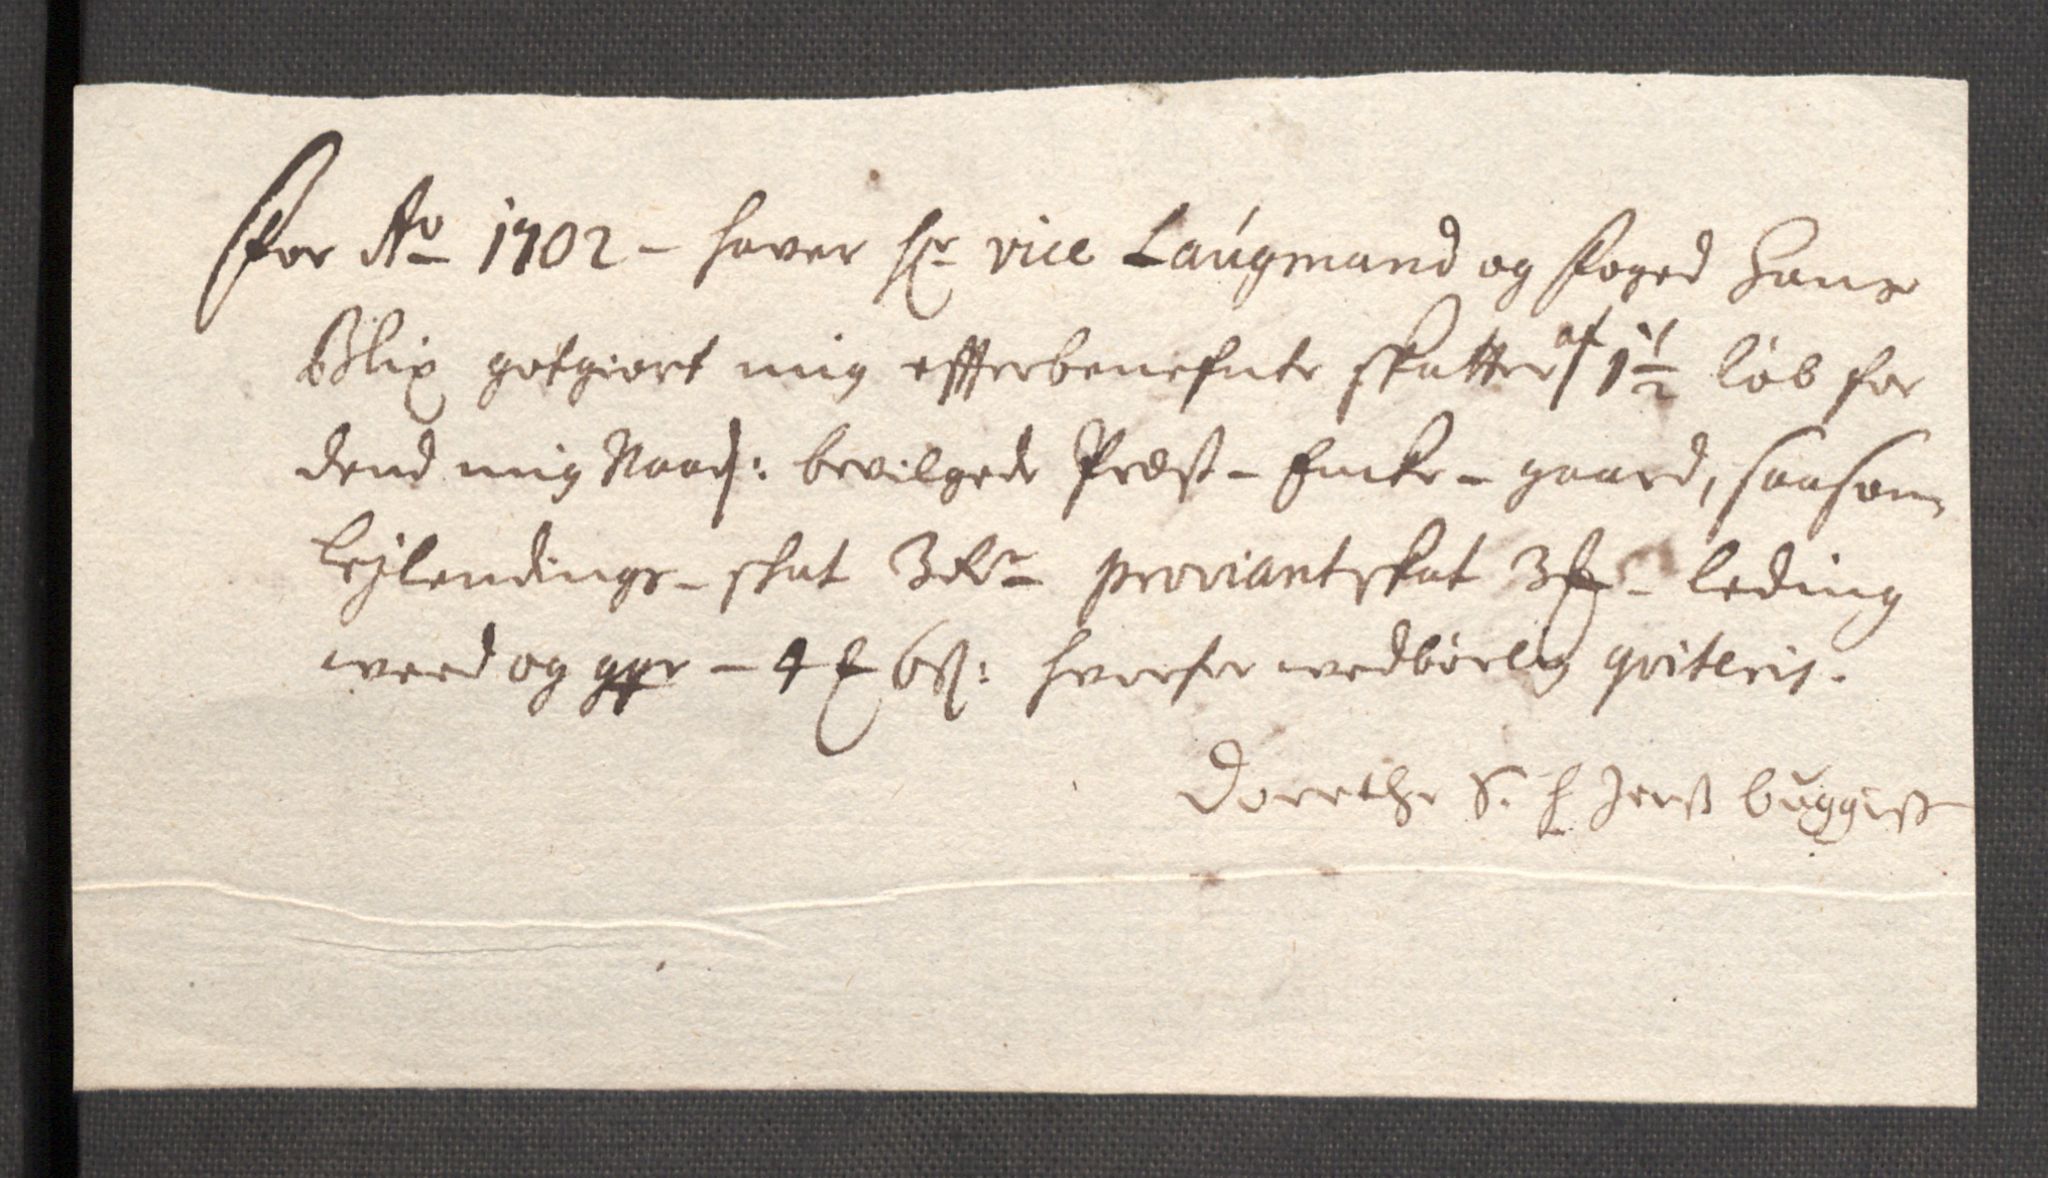 For Ao 1702 - haver hr vice Laugmand og foged Hans
Blix gotgiort mig effterbenefnte skatter af 1½ löb for
dend mig Naad: bevilgede Præst-Encke-gaard, saasom
Leylendings-skat 3 proviantskat 3 leding
og - 4 6 ß: hvorfor vedbörlig qviteris.
Dorethe S. h Jenß buggeß